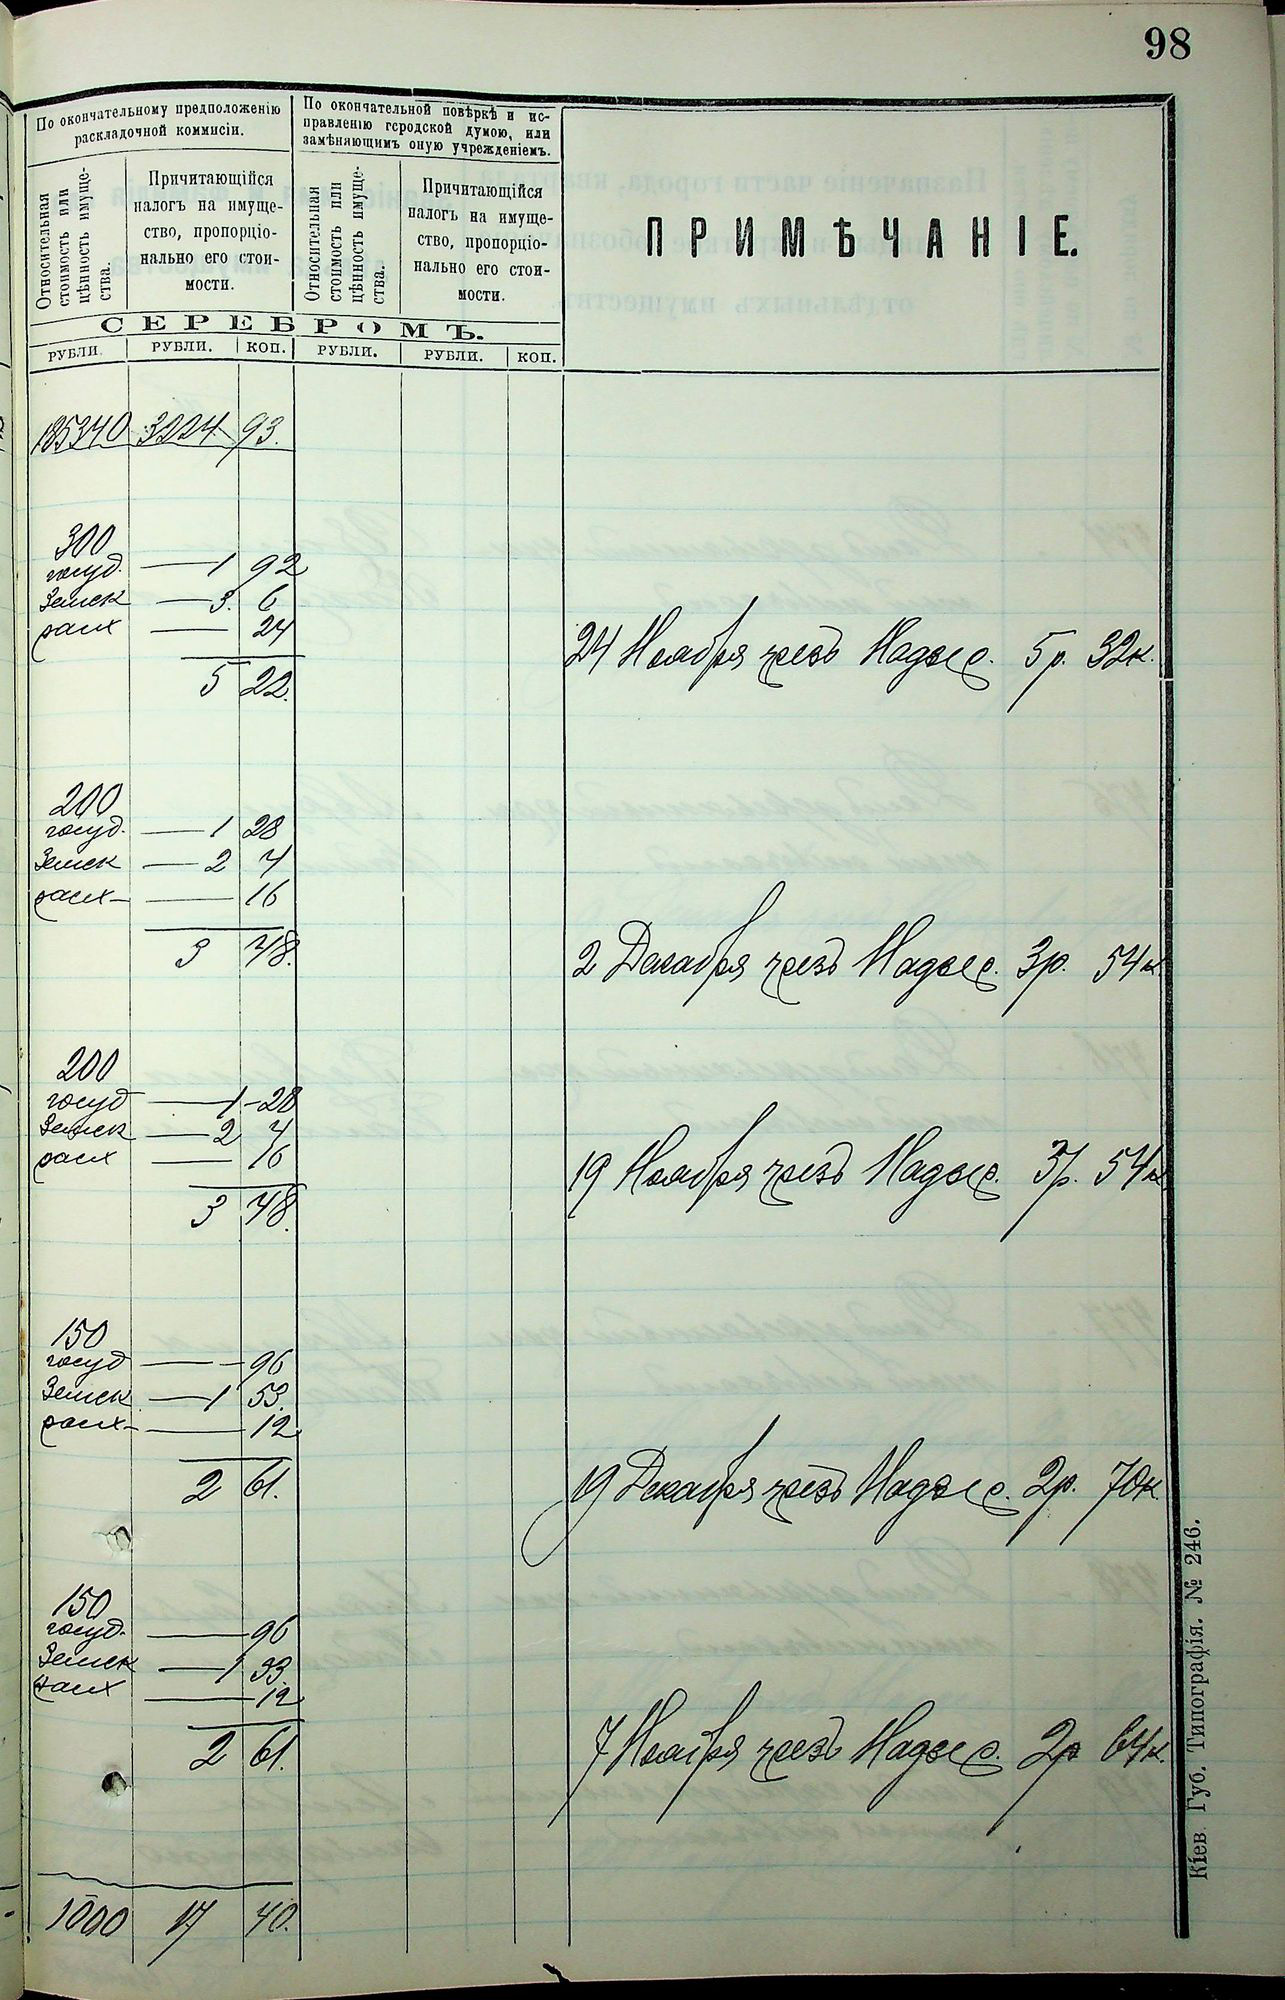 98
По окончательному предположенію
раскладочной коммисіи.
По окончательной повѣркѣ и ис-
правленію городской думою, или
замѣняющимъ оную учрежденіемъ.
Относительная
стоимость или
цѣнность имуще-
ства.
Причитающійся
налогъ на имуще-
ство, пропорціо-
нально его стои-
мости.
Относительная
стоимость или
цѣнность имуще-
ства.
Причитающійся
налогъ на имуще-
ство, пропорціо-
нально его стои-
мости.
ПРИМѢЧАНІЕ.
СЕРЕБРОМЪ.
РУБЛИ. РУБЛИ. КОП. РУБЛИ. РУБЛИ. КОП.
185340 3224 93.
300
госуд. — 1 92
Земск — 3. 6
расх — 24
24 Ноября чрезъ Надзис. 5 р. 32 к.
5 22.
200
госуд. — 1 28
Земск — 2 4
расх — 16
3 48.
2 Декабря чрезъ Надзис. 3 р. 54 к
200
госуд — 1 - 28
Земск — 2 4
расх — 16
19 Ноября чрезъ Надзис. 3 р. 54 к
3 48.
150
госуд — 96
Земск — 1 53.
расх — 12
2 61.
19 Декабря чрезъ Надзис. 2 р. 70 к.
150
госуд. — 96
Земск — 1 53.
расх — 12
2 61.
7 Ноября чрезъ Надзис. 2 р 64 к.
1000 17 40.
Кіев. Губ. Типографія. № 246.